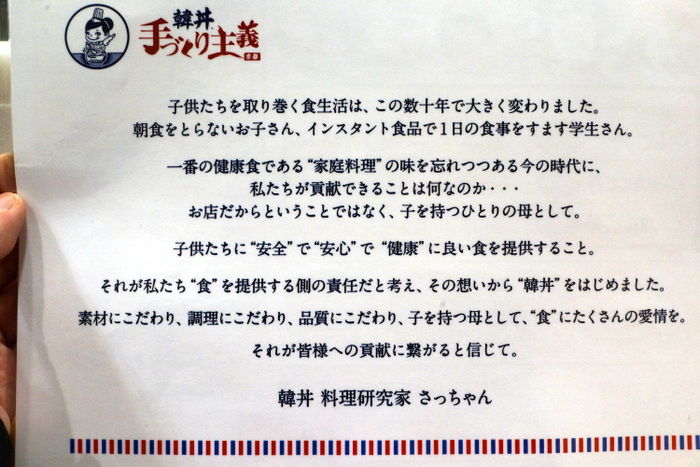 韓丼
手づくり主義
京都
子供たちを取り巻く食生活は、この数十年で大きく変わりました。
朝食をとらないお子さん、インスタント食品で1日の食事をすます学生さん。
一番の健康食である“家庭料理”の味を忘れつつある今の時代に、
私たちが貢献できることは何なのか・・・
お店だからということではなく、子を持つひとりの母として。
子供たちに“安全”で“安心”で“健康”に良い食を提供すること。
それが私たち“食”を提供する側の責任だと考え、その想いから“韓丼”をはじめました。
素材にこだわり、調理にこだわり、品質にこだわり、子を持つ母として、“食”にたくさんの愛情を。
それが皆様への貢献に繋がると信じて。
韓丼 料理研究家 さっちゃん